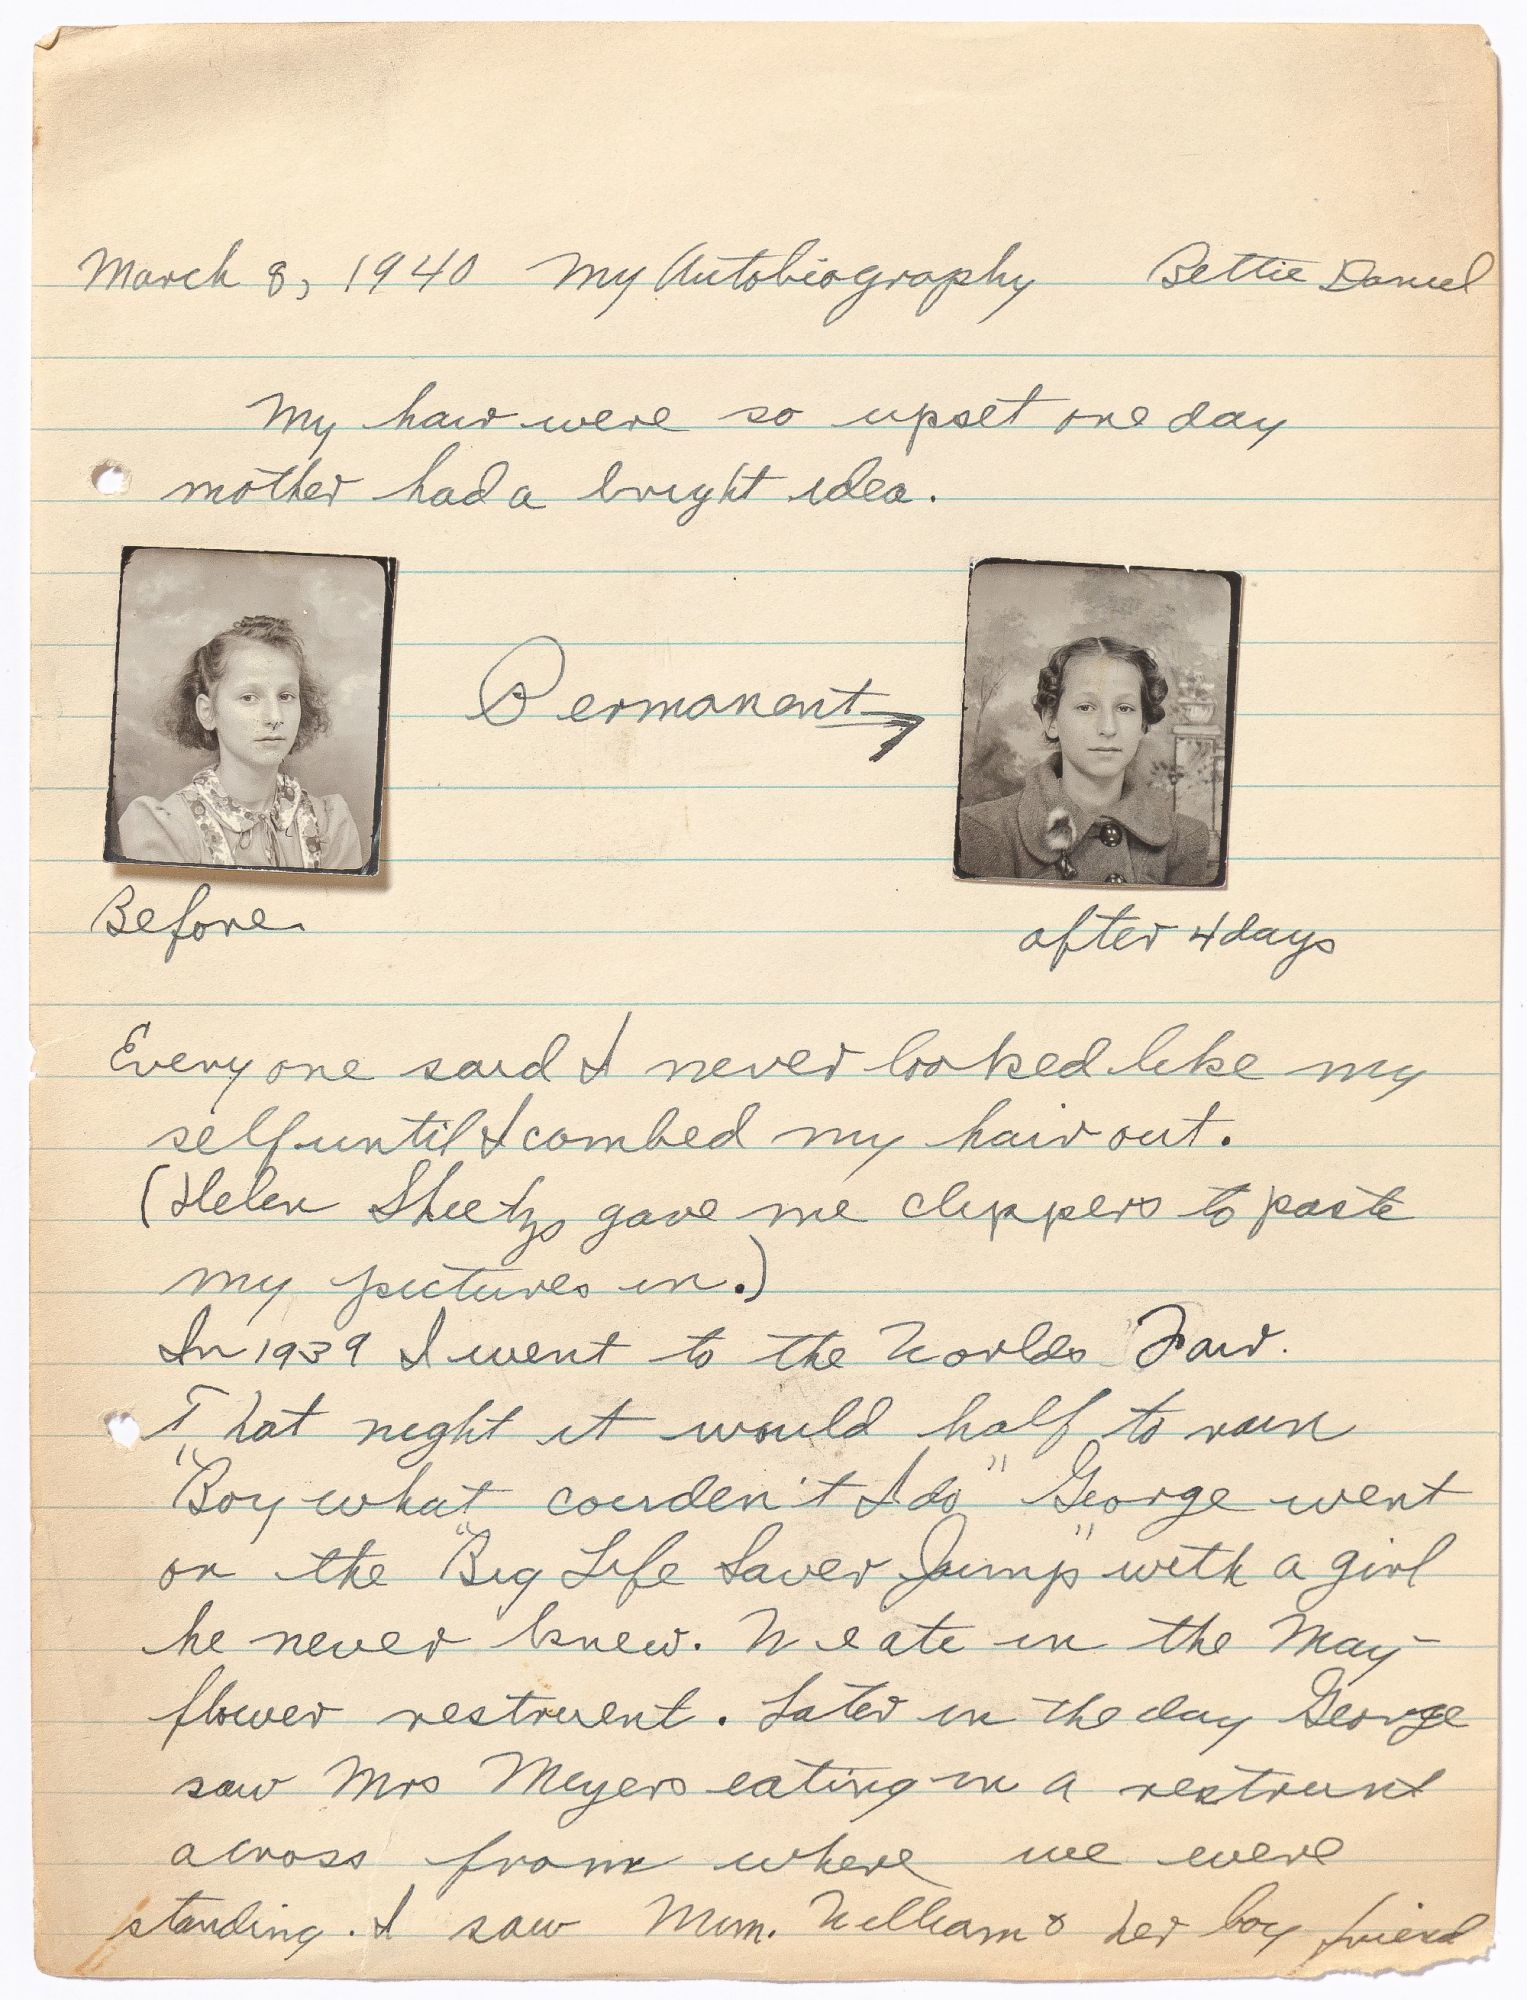 March 8, 1940 My Autobiography Bettie Daniel
My hair were so upset one day
mother had a bright idea.
Permanent
Before
after 4 days
Everyone said I never looked like my
self until I combed my hair out.
(Helen Sheetzs gave me clippers to paste
my pictures in.)
In 1939 I went to the Worlds Fair.
That night it would half to rain
"Boy what courden't I do" George went
on the "Big Life Saver Jump" with a girl
he never knew. We ate in the May-
flower restruent. Later in the day George
saw Mrs Meyers eating in a restrunt
across from where we were
standing. I saw Mum. William & her boy friend